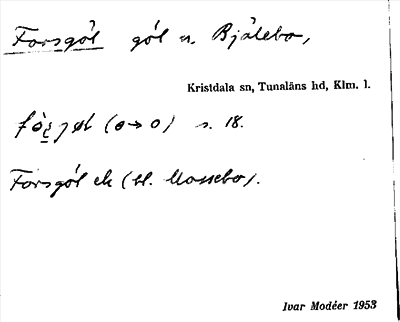 Forsgöl göl n. Bjälebo,
Kristdala sn, Tunaläns hd, Klm. l.
s. 18.
Forsgöl ek (bl. Mossebo).
Ivar Modéer 1953